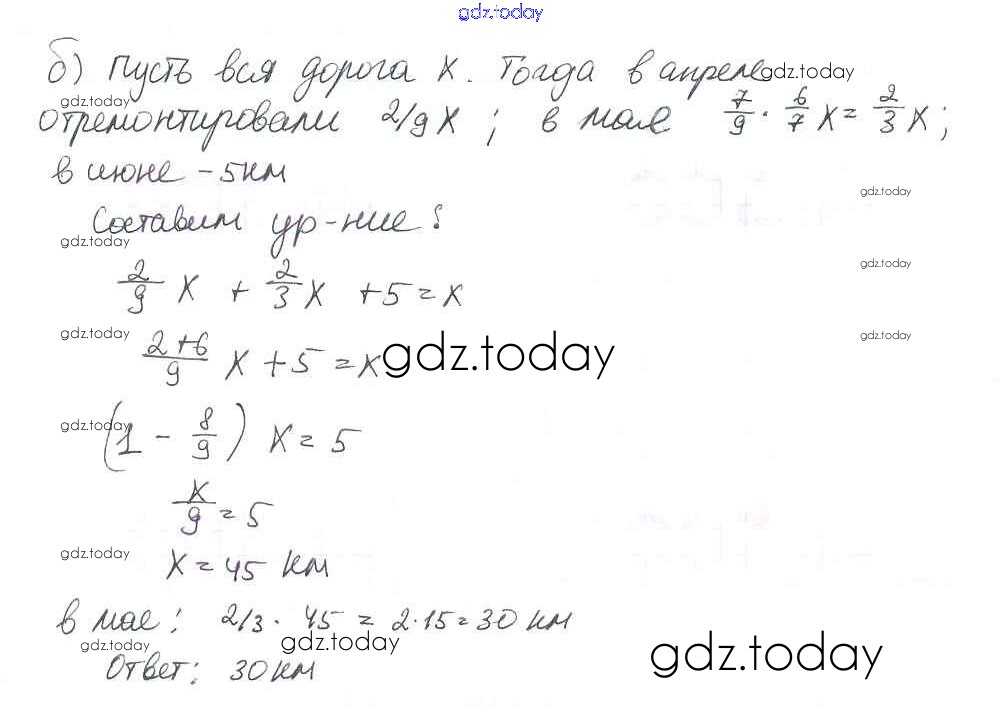 gdz.today
б) Пусть вся дорога x. Тогда в апреле gdz.today
gdz.today
отремонтировали 2/9 x ; в мае 7/9 · 6/7 x = 2/3 x ;
в июне – 5 км
gdz.today
Составим ур-ние:
gdz.today
2/9 x + 2/3 x + 5 = x
gdz.today
gdz.today
gdz.today
2+6/9 x + 5 = x gdz.today
gdz.today
(1 - 8/9) x = 5
x/9 = 5
gdz.today
x = 45 км
в мае: 2/3 · 45 = 2·15 = 30 км
gdz.today gdz.today gdz.today
Ответ: 30 км